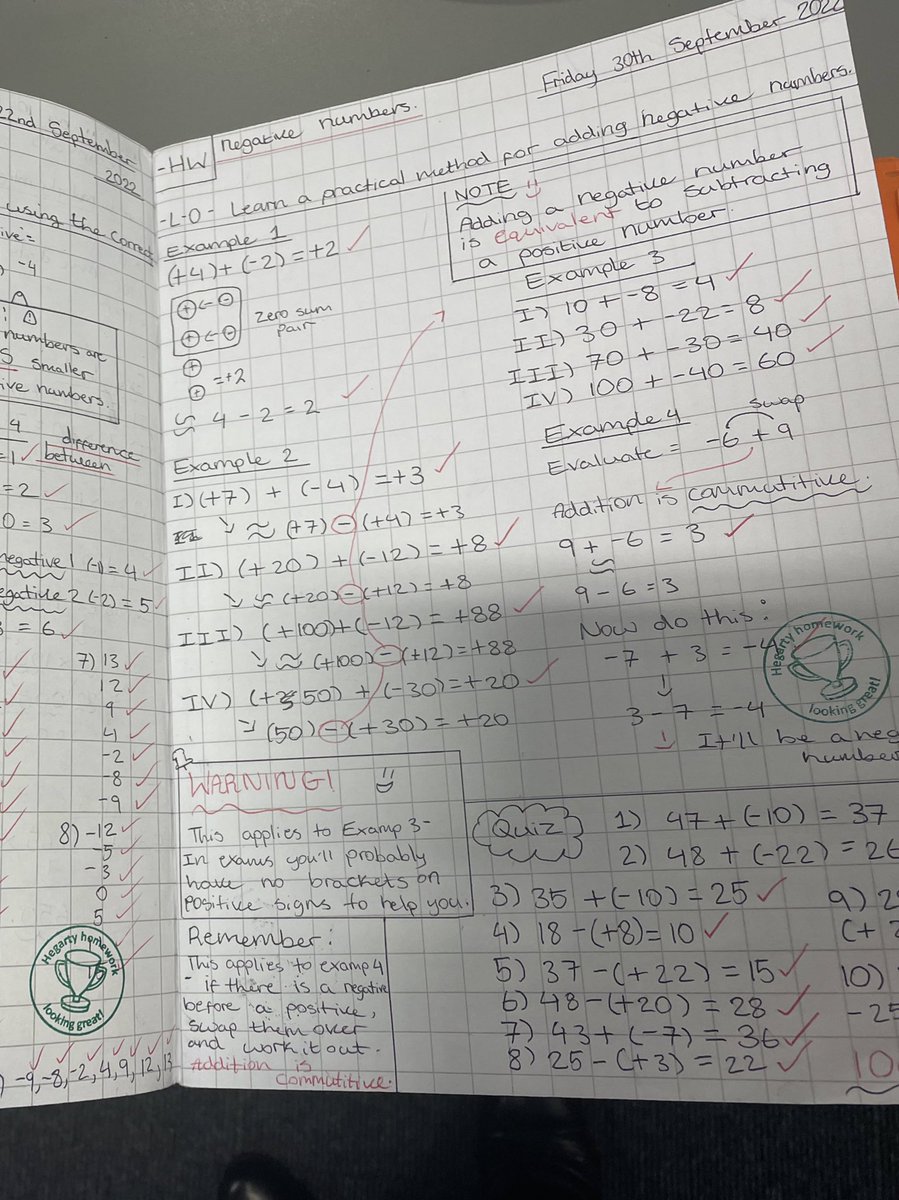 22nd September
2022
using the correct
ive=
-4
numbers are
S smaller
ive numbers.
4
difference
=1 between
=2
0 = 3
negative 1 (-1) = 4
egative 2 (-2) = 5
= 6
7) 13
12
9
4
-2
-8
-9
8) -12
-5
-3
0
5
Hegarty homework
looking great!
) -9, -8, -2, 4, 9, 12, 13
Friday 30th September 2022
-HW negative numbers.
-L-O- Learn a practical method for adding negative numbers.
Example 1
(+4) + (-2) = +2
+ ← -
+ ← -
zero sum
pair
+
+ = +2
4 - 2 = 2
Example 2
I) (+7) + (-4) = +3
≈ (+7) - (+4) = +3
II) (+20) + (-12) = +8
≈ (+20) - (+12) = +8
III) (+100) + (-12) = +88
≈ (+100) - (+12) = +88
IV) (+50) + (-30) = +20
(50) - (+30) = +20
WARNING!
This applies to Examp 3-
In exams you'll probably
have no brackets on
positive signs to help you.
Remember:
This applies to examp 4
- if there is a negative
before a positive,
swap them over
and work it out.
Addition is
commutitive.
NOTE
Adding a negative number
is equivalent to subtracting
a positive number.
Example 3
I) 10 + -8 = 4
II) 30 + -22 = 8
III) 70 + -30 = 40
IV) 100 + -40 = 60
Example 4
swap
Evaluate = -6 + 9
Addition is commutitive.
9 + -6 = 3
9 - 6 = 3
Now do this:
-7 + 3 = -4
↓
3 - 7 = -4
It'll be a neg
number
Hegarty homework
looking great!
Quiz
1) 47 + (-10) = 37
2) 48 + (-22) = 26
3) 35 + (-10) = 25
4) 18 - (+8) = 10
5) 37 - (+22) = 15
6) 48 - (+20) = 28
7) 43 + (-7) = 36
8) 25 - (+3) = 22
9) 2
(+
10)
-25
10